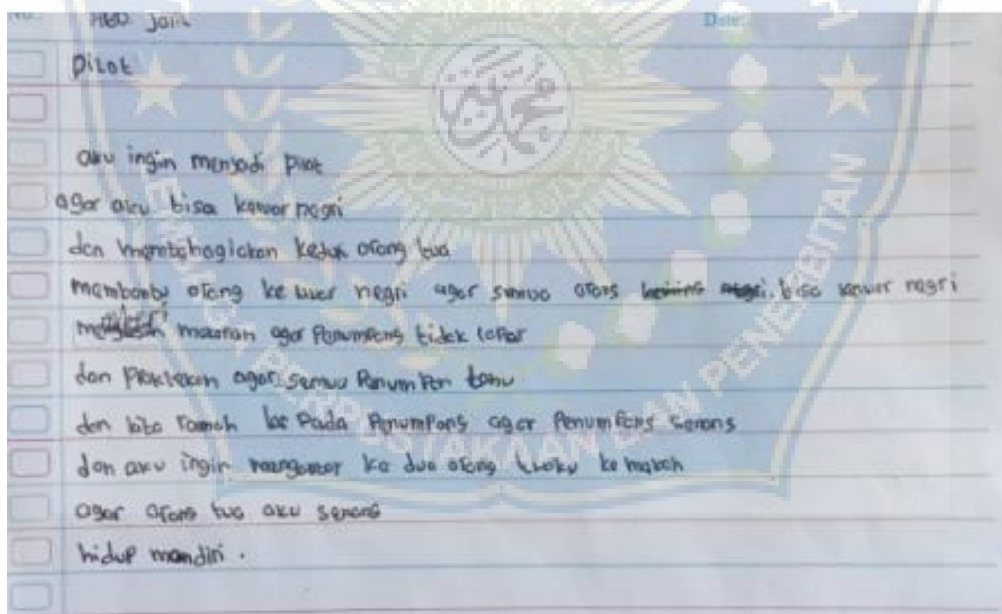 Date:
Pilot
aku ingin menjadi pilot
agar aku bisa keluar negri
dan membahagiakan kedua orang tua
membantu orang ke luer negri agar semua orang bisa keluar negri
makanan agar Penumpang tidak lapar
dan agar semua Penumpan tahu
dan kita ramah ke Pada Penumpang agar Penumpang senang
dan aku ingin mengantar ke dua orang tuaku ke makah
agar orang tua aku senang
hidup mandiri.